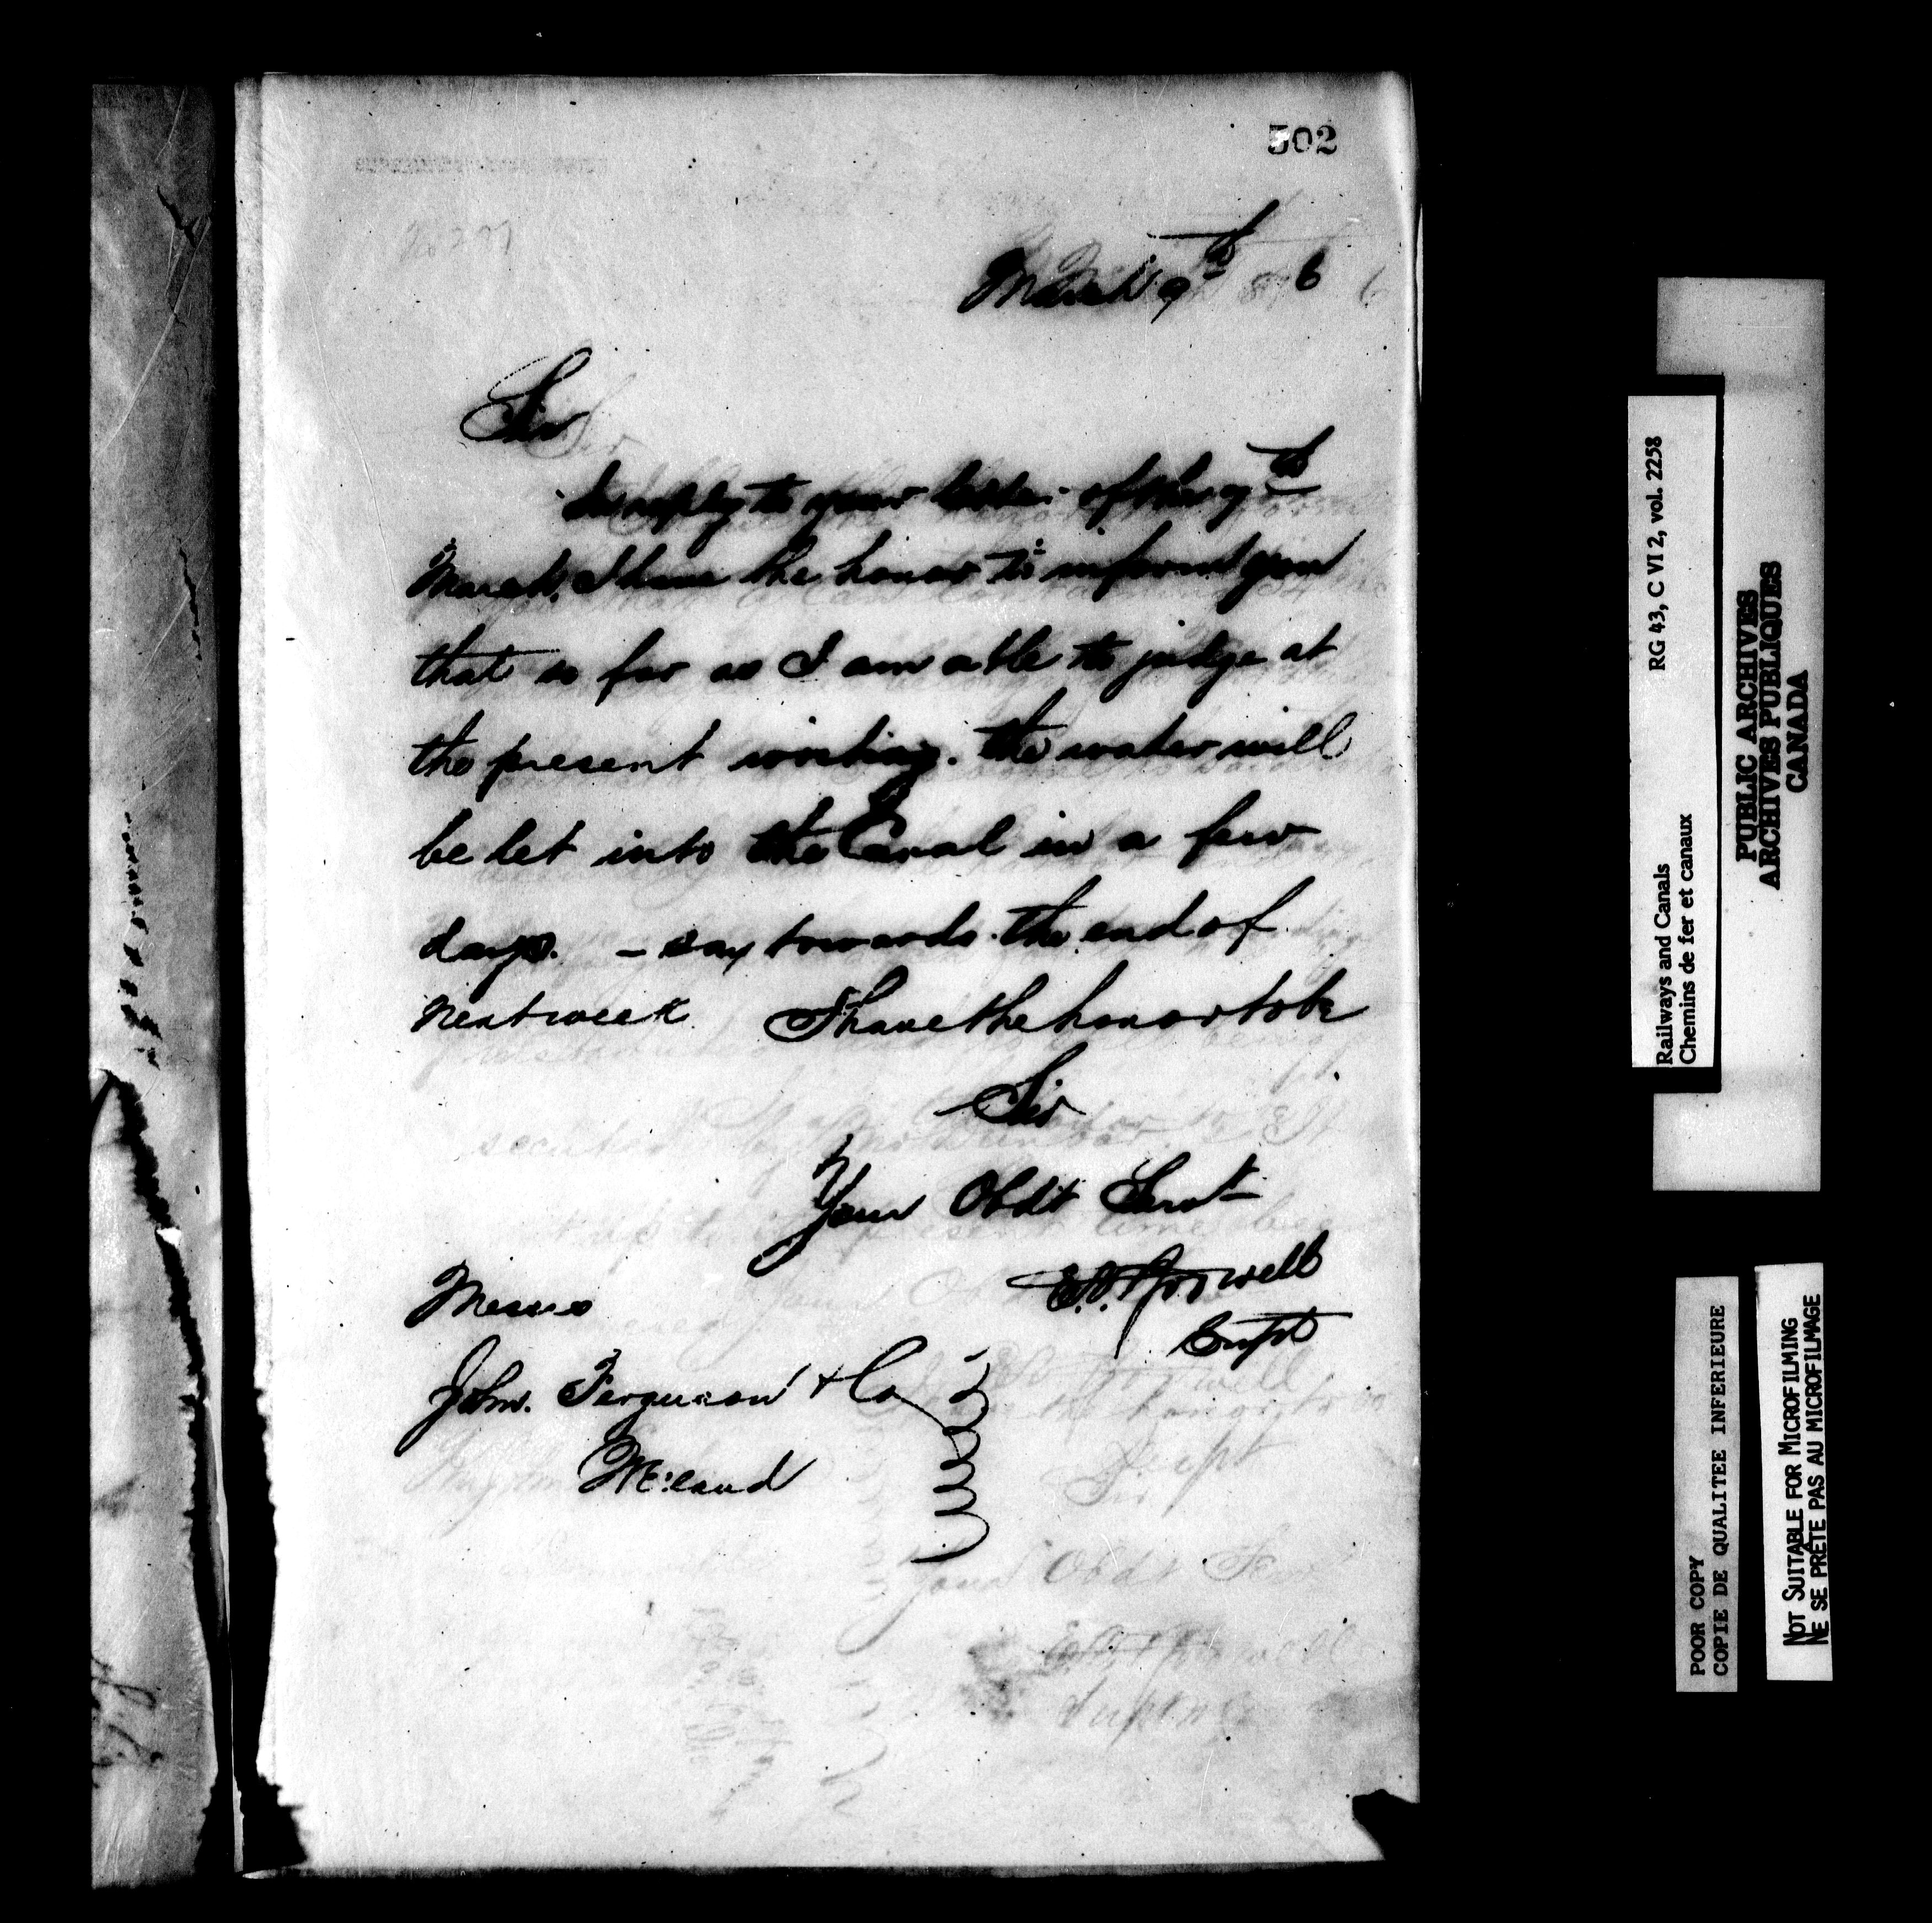 502
March 9th 6
Sir
In reply to your letter of the 9th
March, I have the honor to inform you
that so far as I am able to judge at
the present writing. the water will
be let into the Canal in a few
days. – say towards the end of
next week I have the honor to be
Sir
Your Obdt Servt
Messrs
Supt
John. Ferguson & Co
Railways and Canals RG 43, C VI 2, vol. 2258
Chemins de fer et canaux
PUBLIC ARCHIVES
ARCHIVES PUBLIQUES
CANADA
POOR COPY
COPIE DE QUALITEE INFERIEURE
NOT SUITABLE FOR MICROFILMING
NE SE PRÊTE PAS AU MICROFILMAGE